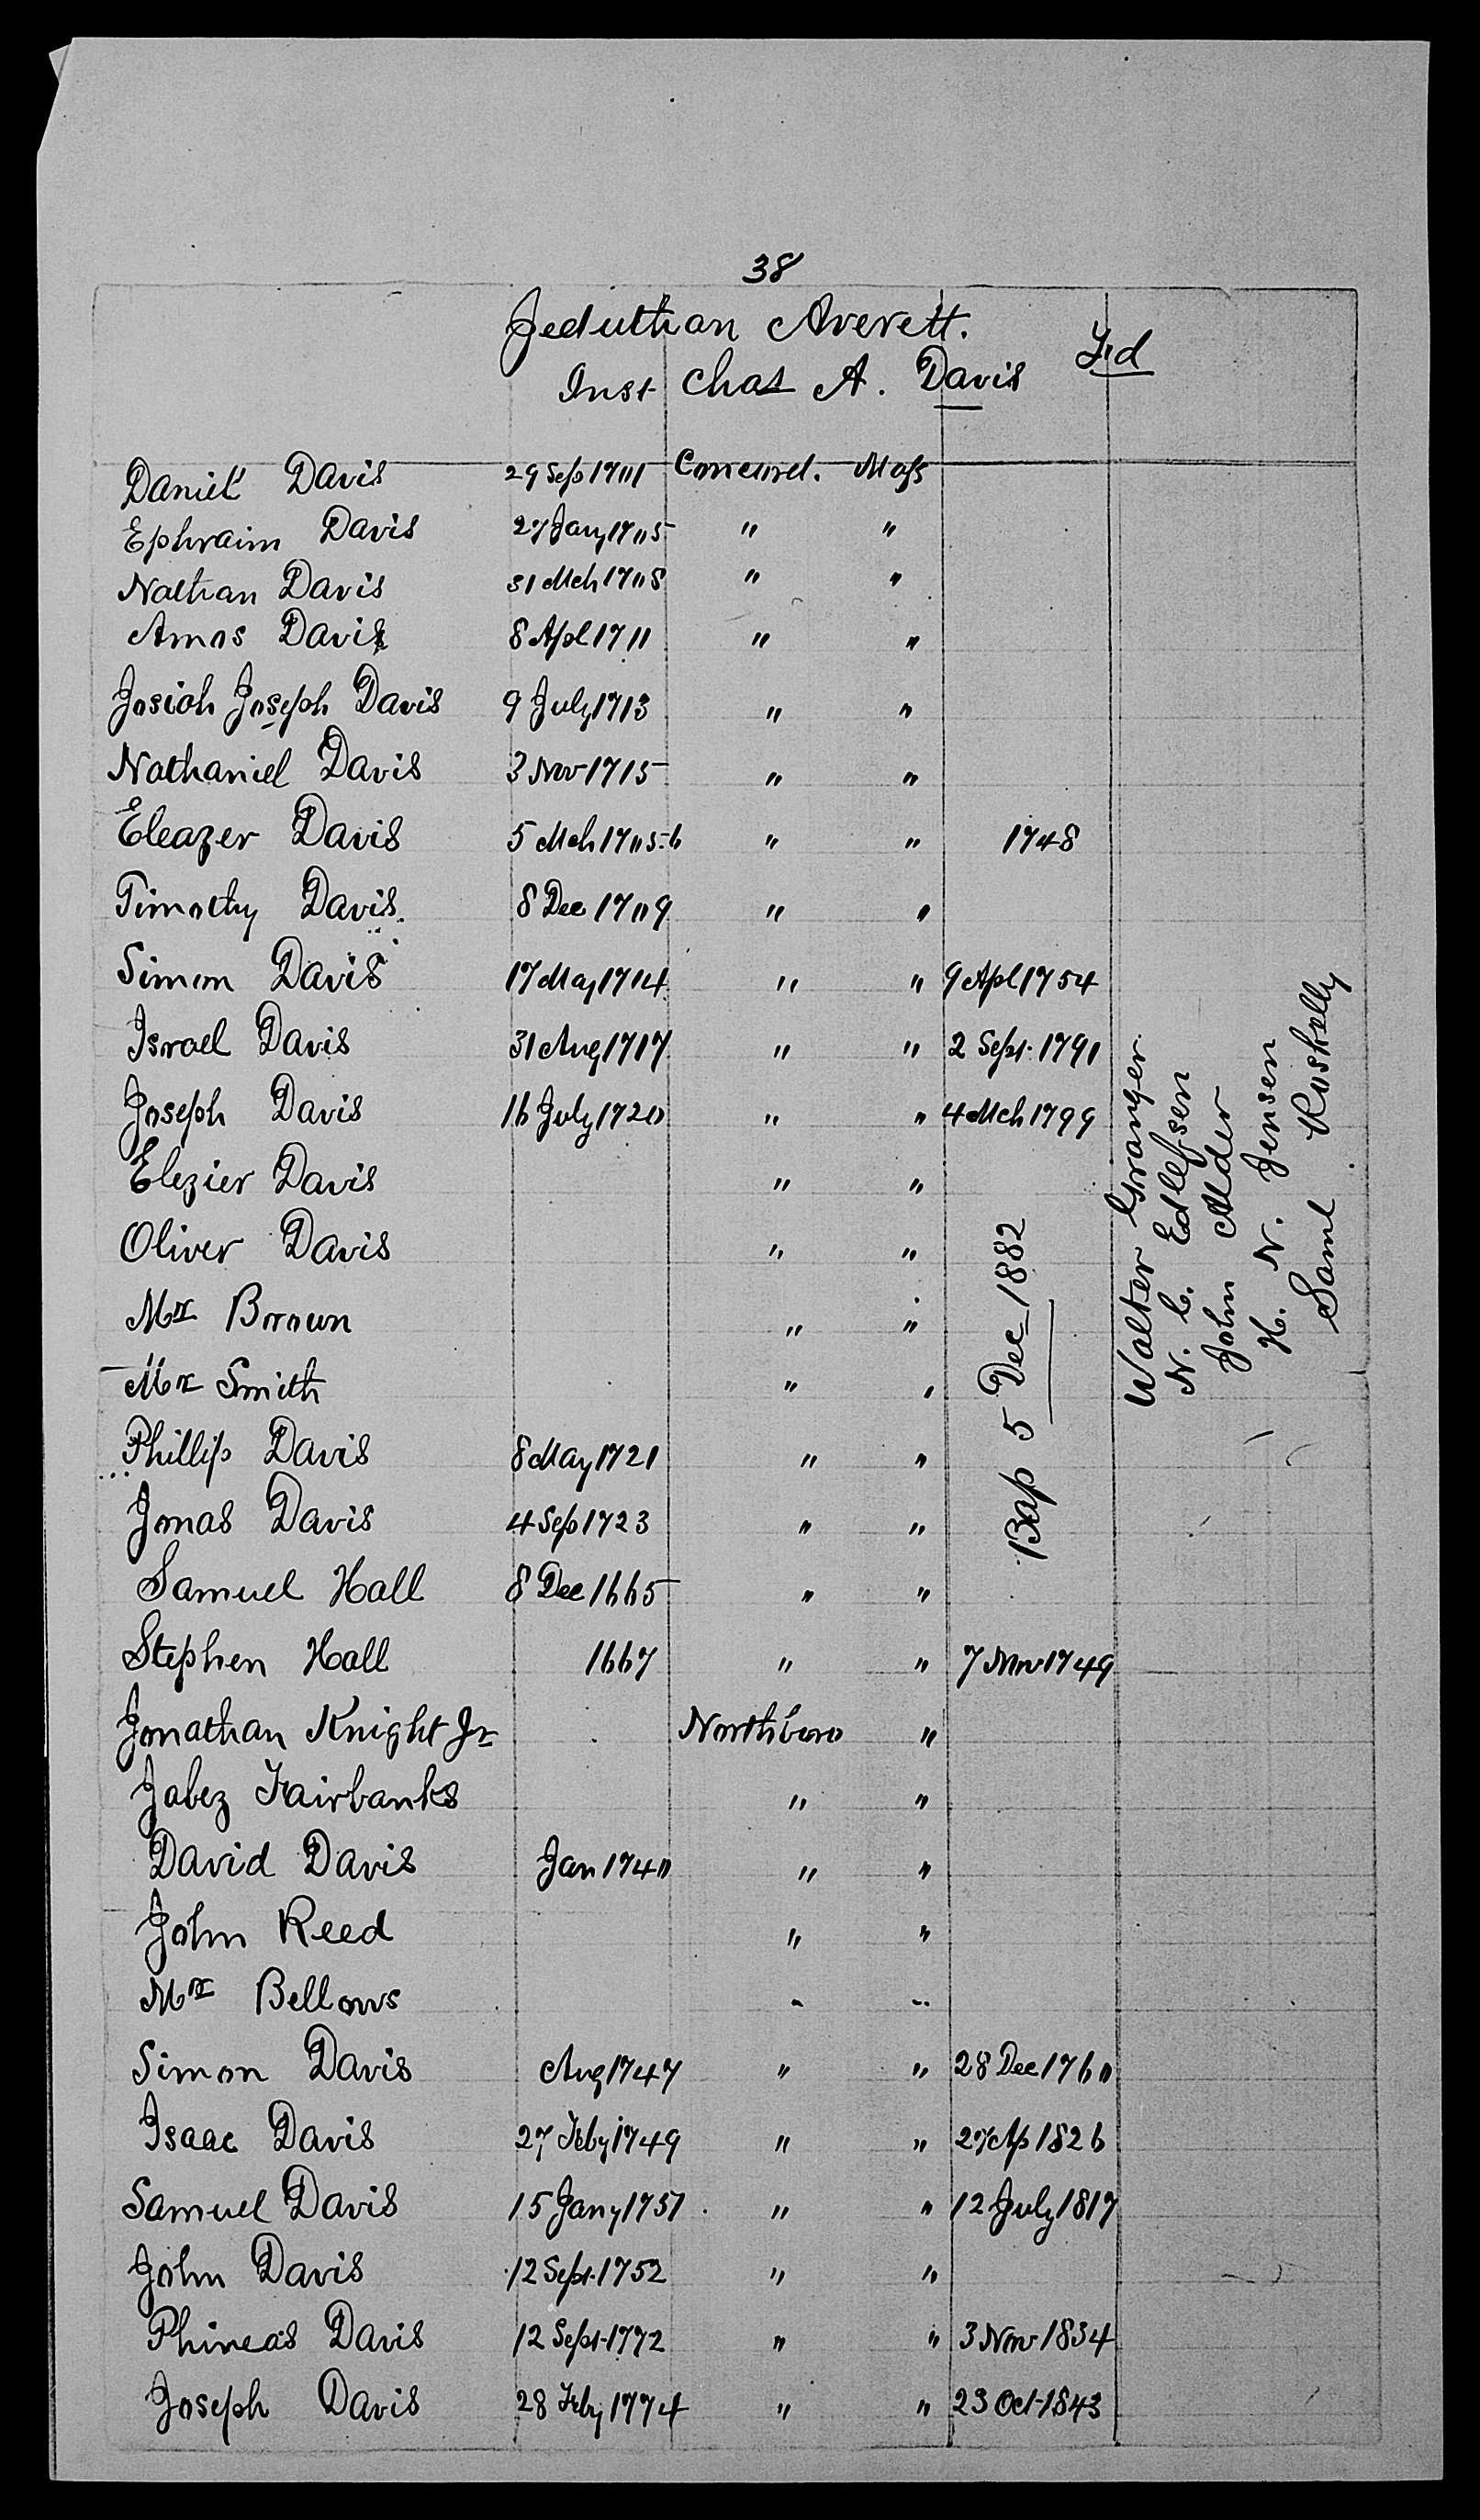 38
Jeduthan Averett.
Inst Chas A. Davis Frd
Daniel Davis 29 Sep 1701 Concord. Mass
Ephraim Davis 27 Jany 1705 " "
Nathan Davis 31 Mch 1708 " "
Amos Davis 8 Apl 1711 " "
Josiah Joseph Davis 9 July 1713 " "
Nathaniel Davis 3 Nov 1715 " "
Eleazer Davis 5 Mch 1705-6 " " 1748
Timothy Davis. 8 Dec 1709 " "
Simon Davis 17 May 1714 " " 9 Apl 1754
Israel Davis 31 Aug 1717 " " 2 Sept. 1791
Joseph Davis 16 July 1720 " " 4 Mch 1799
Elezier Davis " "
Oliver Davis " "
Mr Brown " "
Mr Smith " "
Phillip Davis 8 May 1721 " "
Jonas Davis 4 Sep 1723 " "
Samuel Hall 8 Dec 1665 " "
Stephen Hall 1667 " " 7 Nov 1749
Jonathan Knight Jr Northboro "
Jabez Fairbanks " "
David Davis Jan 1740 " "
John Reed " "
Mr Bellows " "
Simon Davis Aug 1747 " " 28 Dec 1760
Isaac Davis 27 Feby 1749 " " 27 Ap 1826
Samuel Davis 15 Jany 1751 " " 12 July 1817
John Davis 12 Sept. 1752 " "
Phineas Davis 12 Sept. 1772 " " 3 Nov 1834
Joseph Davis 28 Feby 1774 " " 23 Oct 1843
Bap 5 Dec 1882
Walter Granger
N. C. Edlefsen
John Alder
H. N. Jensen
Saml Roskelly